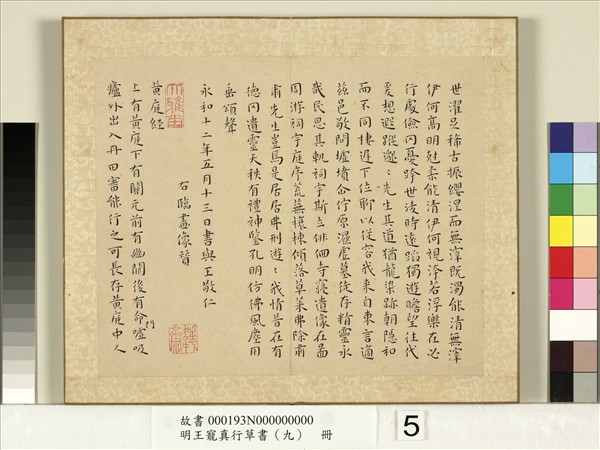 世濯足稀古振纓涅而無滓既濁能清無滓
伊何高明剋柔能清伊何視汙若浮樂在必
行處儉罔憂跨世淩時遠蹈獨遊瞻望往代
爰想遐蹤邈邈先生其道猶龍染跡朝隱和
而不同棲遲下位聊以從容我來自東言適
茲邑敬問墟墳企佇原隰虛墓徒存精靈永
戢民思其軌祠宇斯立徘徊寺寢遺像在啚
周游祠宇庭序荒蕪榱棟傾落草萊弗除肅
肅先生豈焉是居居弗刑遊遊我情昔在有
德罔遺靈天秩有禮神鑒孔明仿彿風塵用
垂頌聲
永和十二年五月十三日書與王敬仁
右臨畫像贊
黃庭經
上有黃庭下有關元前有幽闕後有命門噓吸
廬外出入丹田審能行之可長存黃庭中人
故書000193N000000000
明王寵真行草書（九） 冊
5